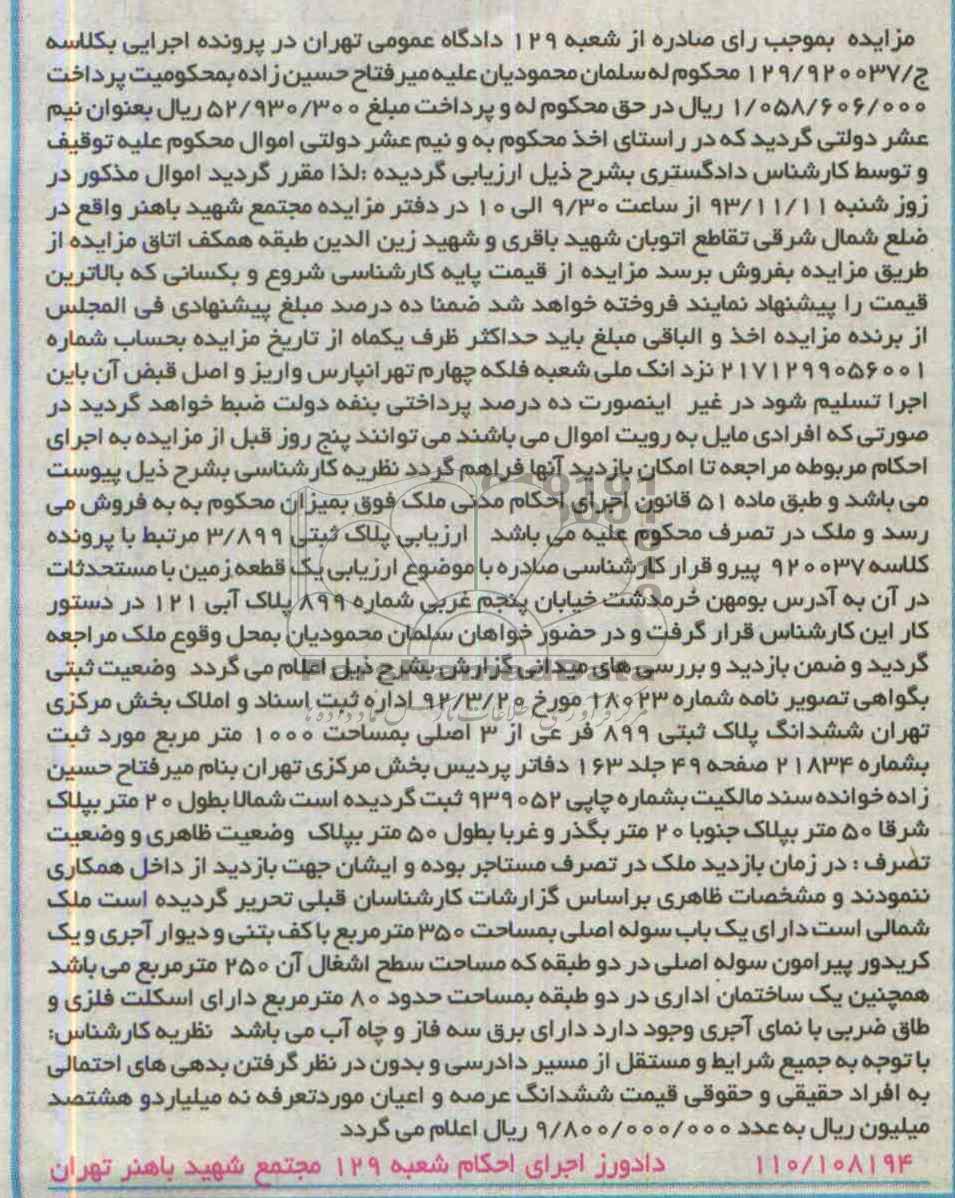 مزایده بموجب رای صادره از شعبه ۱۲۹ دادگاه عمومی تهران در پرونده اجرایی بکلاسه
ج/۱۲۹/۹۲۰۰۳۷ محکوم له سلمان محمودیان علیه میرفتاح حسین زاده بمحکومیت پرداخت
۱/۰۵۸/۶۰۶/۰۰۰ ریال در حق محکوم له و پرداخت مبلغ ۵۲/۹۳۰/۳۰۰ ریال بعنوان نیم
عشر دولتی گردید که در راستای اخذ محکوم به و نیم عشر دولتی اموال محکوم علیه توقیف
و توسط کارشناس دادگستری بشرح ذیل ارزیابی گردیده :لذا مقرر گردید اموال مذکور در
روز شنبه ۹۳/۱۱/۱۱ از ساعت ۹/۳۰ الی ۱۰ در دفتر مزایده مجتمع شهید باهنر واقع در
ضلع شمال شرقی تقاطع اتوبان شهید باقری و شهید زین الدین طبقه همکف اتاق مزایده از
طریق مزایده بفروش برسد مزایده از قیمت پایه کارشناسی شروع و بکسانی که بالاترین
قیمت را پیشنهاد نمایند فروخته خواهد شد ضمنا ده درصد مبلغ پیشنهادی فی المجلس
از برنده مزایده اخذ و الباقی مبلغ باید حداکثر ظرف یکماه از تاریخ مزایده بحساب شماره
۲۱۷۱۲۹۹۰۵۶۰۰۱ نزد انک ملی شعبه فلکه چهارم تهرانپارس واریز و اصل قبض آن باین
اجرا تسلیم شود در غیر اینصورت ده درصد پرداختی بنفه دولت ضبط خواهد گردید در
صورتی که افرادی مایل به رویت اموال می باشند می توانند پنج روز قبل از مزایده به اجرای
احکام مربوطه مراجعه تا امکان بازدید آنها فراهم گردد نظریه کارشناسی بشرح ذیل پیوست
می باشد و طبق ماده ۵۱ قانون اجرای احکام مدنی ملک فوق بمیزان محکوم به به فروش می
رسد و ملک در تصرف محکوم علیه می باشد ارزیابی پلاک ثبتی ۳/۸۹۹ مرتبط با پرونده
کلاسه ۹۲۰۰۳۷ پیرو قرار کارشناسی صادره با موضوع ارزیابی یک قطعه زمین با مستحدثات
در آن به آدرس بومهن خرمدشت خیابان پنجم غربی شماره ۸۹۹ پلاک آبی ۱۲۱ در دستور
کار این کارشناس قرار گرفت و در حضور خواهان سلمان محمودیان بمحل وقوع ملک مراجعه
گردید و ضمن بازدید و بررسی های میدانی گزارش بشرح ذیل اعلام می گردد وضعیت ثبتی
بگواهی تصویر نامه شماره ۱۸۰۲۳ مورخ ۹۲/۳/۲۰ اداره ثبت اسناد و املاک بخش مرکزی
تهران ششدانگ پلاک ثبتی ۸۹۹ فر عی از ۳ اصلی بمساحت ۱۰۰۰ متر مربع مورد ثبت
بشماره ۲۱۸۳۴ صفحه ۴۹ جلد ۱۶۳ دفاتر پردیس بخش مرکزی تهران بنام میرفتاح حسین
زاده خوانده سند مالکیت بشماره چاپی ۹۳۹۰۵۲ ثبت گردیده است شمالا بطول ۲۰ متر بپلاک
شرقا ۵۰ متر بپلاک جنوبا ۲۰ متر بگذر و غربا بطول ۵۰ متر بپلاک وضعیت ظاهری و وضعیت
تصرف : در زمان بازدید ملک در تصرف مستاجر بوده و ایشان جهت بازدید از داخل همکاری
ننمودند و مشخصات ظاهری براساس گزارشات کارشناسان قبلی تحریر گردیده است ملک
شمالی است دارای یک باب سوله اصلی بمساحت ۳۵۰ مترمربع با کف بتنی و دیوار آجری و یک
کریدور پیرامون سوله اصلی در دو طبقه که مساحت سطح اشغال آن ۲۵۰ مترمربع می باشد
همچنین یک ساختمان اداری در دو طبقه بمساحت حدود ۸۰ مترمربع دارای اسکلت فلزی و
طاق ضربی با نمای آجری وجود دارد دارای برق سه فاز و چاه آب می باشد نظریه کارشناس:
با توجه به جمیع شرایط و مستقل از مسیر دادرسی و بدون در نظر گرفتن بدهی های احتمالی
به افراد حقیقی و حقوقی قیمت ششدانگ عرصه و اعیان موردتعرفه نه میلیاردو هشتصد
میلیون ریال به عدد ۹/۸۰۰/۰۰۰/۰۰۰ ریال اعلام می گردد
۱۱۰/۱۰۸۱۹۴ دادورز اجرای احکام شعبه ۱۲۹ مجتمع شهید باهنر تهران